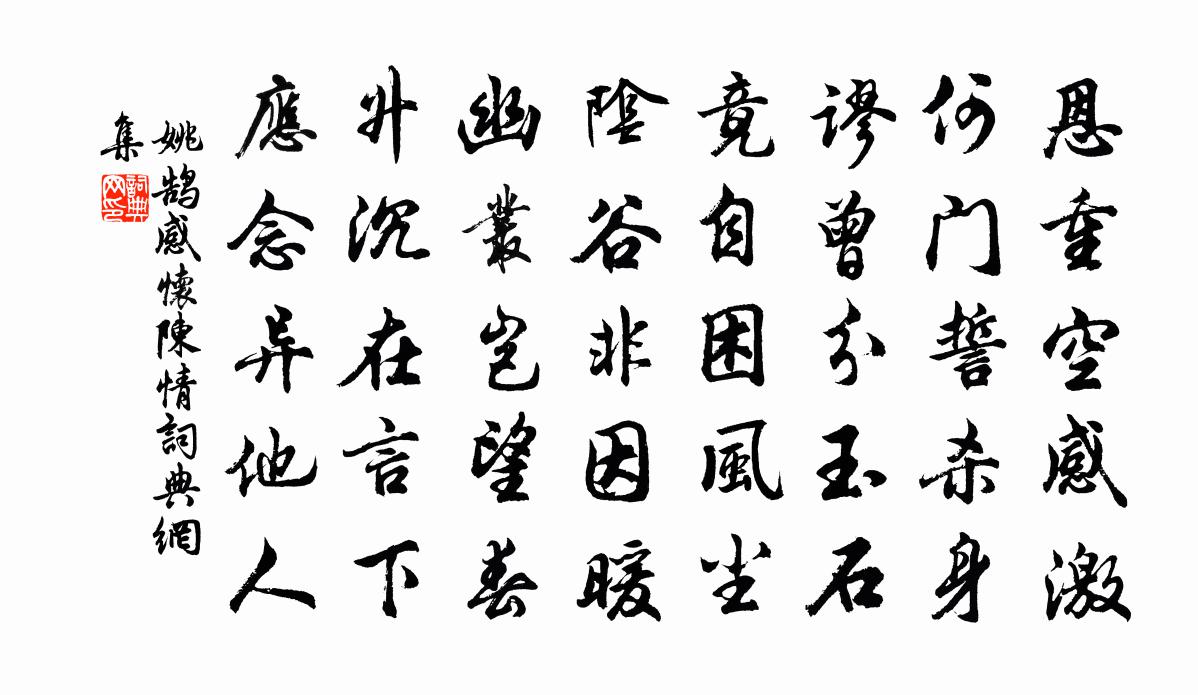 恩重空感激
何门誓杀身
谬曾分玉石
竟自困風尘
陰谷非因暖
幽叢岂望春
升沉在言下
應念异他人
姚鹄感懷陳情詞典網
集
詞典
网印